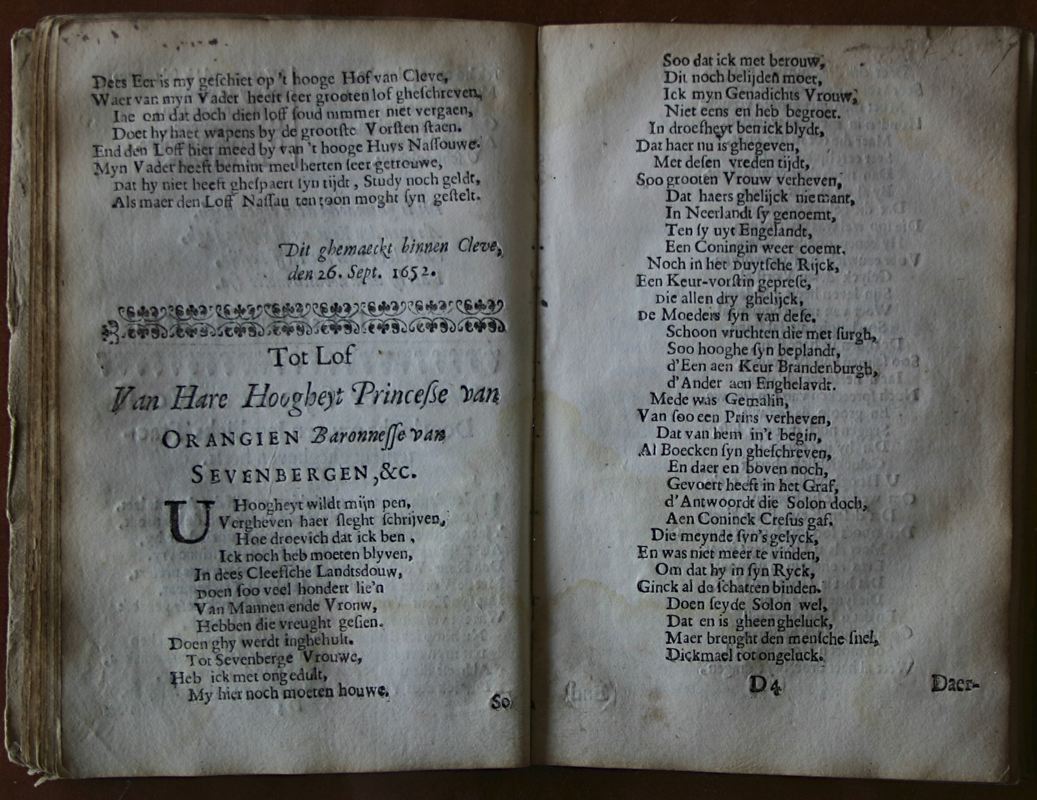 Dees Eer is my geschiet op 't hooge Hof van Cleve,
Waer van myn Vader heeft seer grooten lof gheschreven,
Iae om dat doch dien loff soud nimmer niet vergaen,
Doet hy haer wapens by de grootste Vorsten staen.
End den Loff hier meed by van 't hooge Huys Nassouwe.
Myn Vader heeft bemint met herten seer getrouwe,
Dat hy niet heeft ghespaert syn tijdt, Study noch geldt,
Als maer den Loff Nassau ten toon moght syn gestelt.
Dit ghemaeckt binnen Cleve,
den 26. Sept. 1652.
Tot Lof
Van Hare Hoogheyt Princesse van
ORANGIEN Baronnesse van
SEVENBERGEN, &c.
U Hoogheyt wildt mijn pen,
Vergheven haer sleght schrijven,
Hoe droevich dat ick ben,
Ick noch heb moeten blyven,
In dees Cleefsche Landtsdouw,
Doen soo veel hondert lie'n
Van Mannen ende Vronw,
Hebben die vreught gesien.
Doen ghy werdt inghehult.
Tot Sevenberge Vrouwe,
Heb ick met ongedult,
My hier noch moeten houwe.
So
Soo dat ick met berouw,
Dit noch belijden moet,
Ick myn Genadichts Vrouw,
Niet eens en heb begroet.
In droefheyt ben ick blydt,
Dat haer nu is ghegeven,
Met desen vreden tijdt,
Soo grooten Vrouw verheven,
Dat haers ghelijck niemant,
In Neerlandt sy genoemt,
Ten sy uyt Engelandt,
Een Coningin weer coemt.
Noch in het Duytsche Rijck,
Een Keur-vorstin geprese,
Die allen dry ghelijck,
De Moeders syn van dese.
Schoon vruchten die met surgh,
Soo hooghe syn beplandt,
d'Een aen Keur Brandenburgh,
d'Ander aen Enghelavdt.
Mede was Gemalin,
Van soo een Prins verheven,
Dat van hem in't begin,
Al Boecken syn gheschreven,
En daer en boven noch,
Gevoert heeft in het Graf,
d'Antwoordt die Solon doch,
Aen Coninck Cresus gaf.
Die meynde syn's gelyck,
En was niet meer te vinden,
Om dat hy in syn Ryck,
Ginck al de schatten binden.
Doen seyde Solon wel,
Dat en is gheen gheluck,
Maer brenght den mensche snel,
Dickmael tot ongeluck.
D4
Daer-